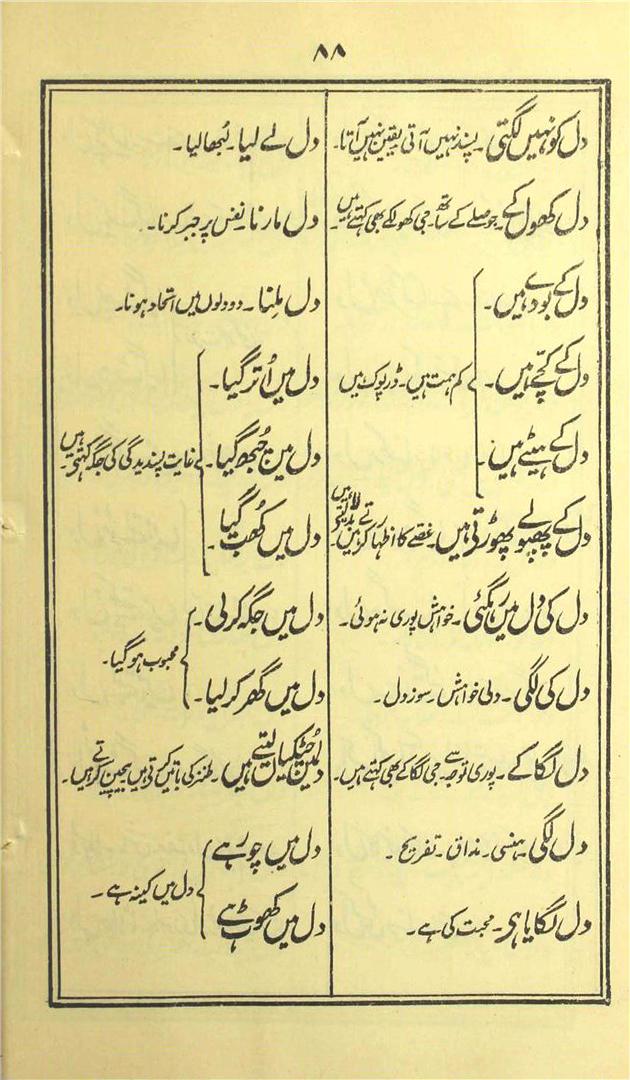 ۸۸
دل کو نہیں لگتی۔ پسند نہیں آتی یقین نہیں آتا۔
دل کھول کے۔ حوصلے کے ساتھ۔ جی کھولکے بھی کہتے ہیں۔
دل کے بودے ہیں۔
دل کے کچّے ہیں۔
دل کے ہیٹے ہیں۔
کم ہمت ہیں۔ ڈرپوک ہیں
دل کے پھپولے پھوڑتی ہیں۔ غصے کا اظہار کرتے ہیں۔
دل کی دل میں رہگئی۔ خواہش پوری نہ ہوئی۔
دل کی لگی۔ دلی خواہش۔ سوز دل۔
دل لگا کے۔ پوری توجہ سے۔ جی لگا کے بھی کہتے ہیں۔
دل لگی۔ ہنسی۔ مذاق۔ تفریح۔
دل لگایا ہی۔ محبت کی ہے۔
دل لے لیا۔ لُبھا لیا۔
دل مارنا۔ نفس پر جبر کرنا۔
دل مِلنا۔ دو دلوں میں اتحاد ہونا۔
دل میں اُتر گیا۔
دل میں چُبھ گیا۔
دل میں کُھب گیا۔
غایت پسندیدگی کی جگہ کہتی ہیں۔
دل میں جگہ کرلی۔
دل میں گھر کر لیا۔
محبوب ہو گیا۔
دلمیں چُٹکیاں لیتے ہیں۔ طنز کی باتیں کرتی ہیں بیچین کرتے ہیں۔
دل میں چور ہے
دل میں کھوٹ ہے
دل میں کینہ ہے۔